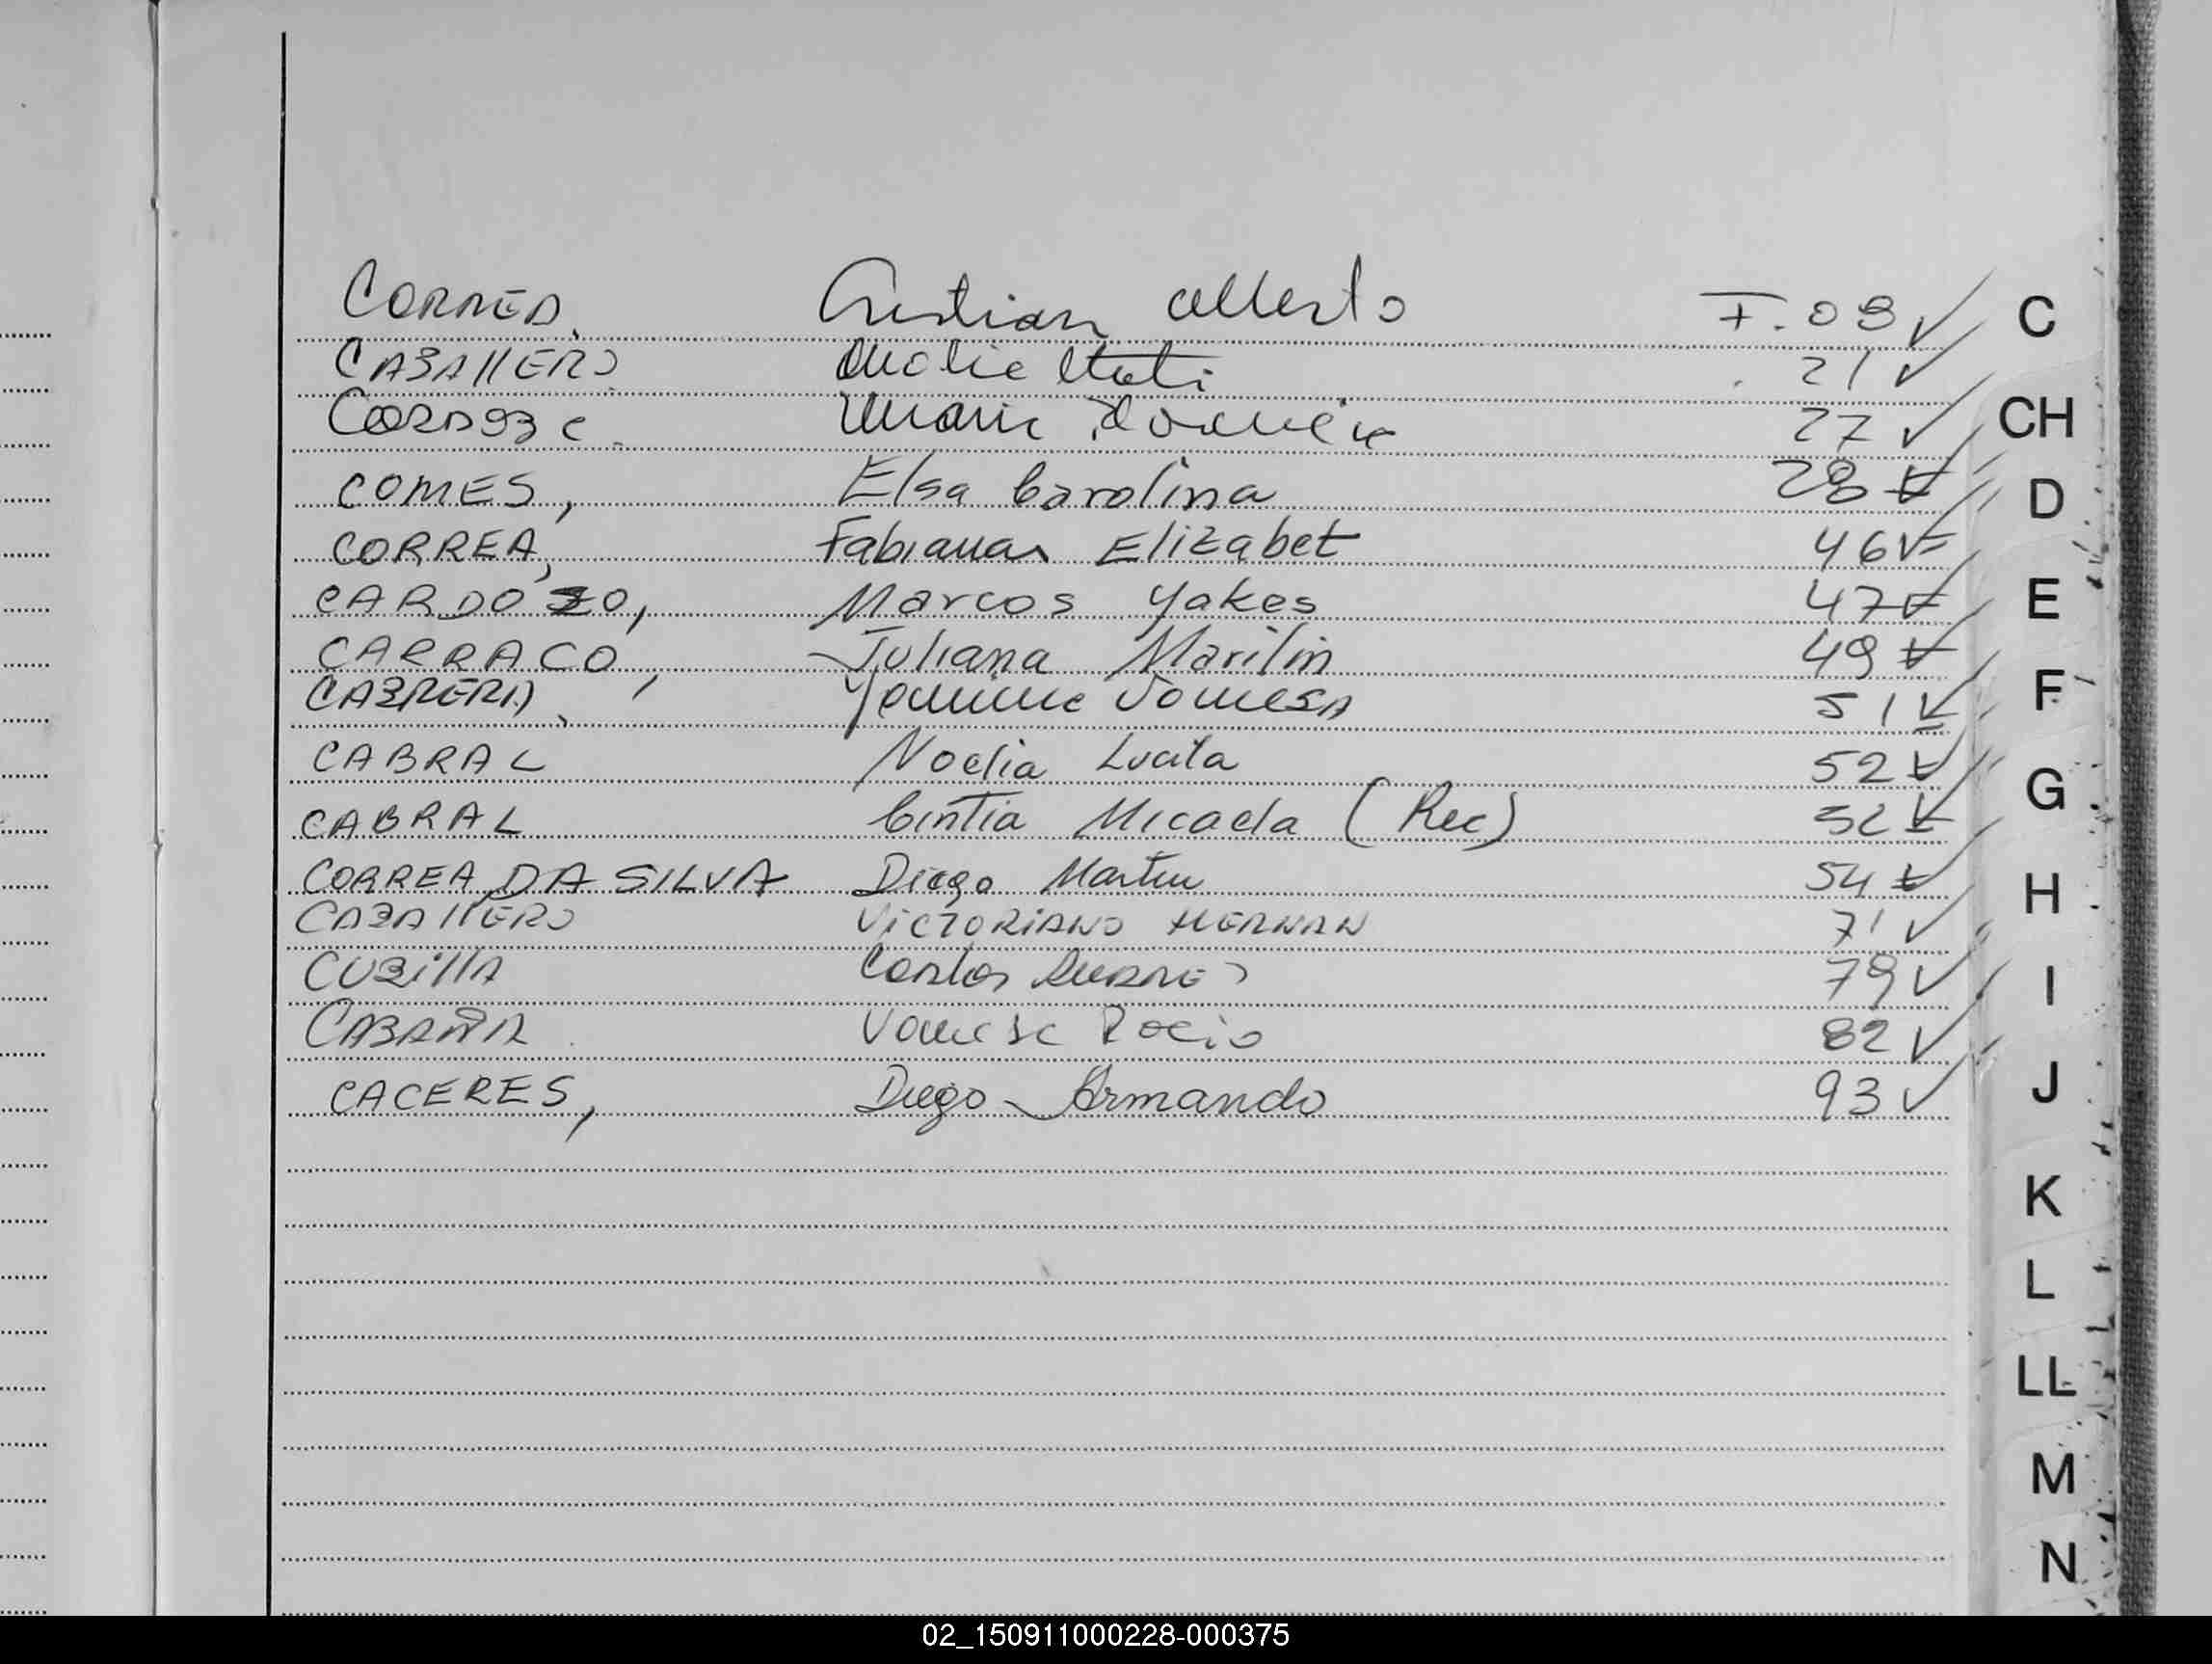 CORREA, Cristian Alberto F. 09
CABALLERO Itati 21
Maria 27
COMES, Elsa Carolina 28
CORREA, Fabiana Elizabet 46
CARDOZO, Marcos Yakes 47
CARRACO, Juliana Marilin 49
CABRERA, Vanesa 51
CABRAL Noelia Lucila 52
CABRAL Cintia Micaela (Rec) 52
CORREA DA SILVA Diego Martin 54
CABALLERO VICTORIANO HERNAN 71
CUBILLA Carlos 79
CABAÑA Vanesa Rocio 82
CACERES, Diego Armando 93
C
CH
D
E
F
G
H
I
J
K
L
LL
M
N
02_150911000228-000375